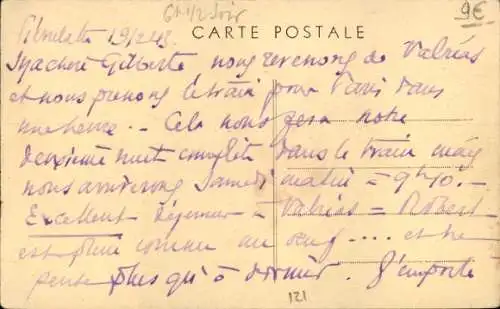 6h 1/2 soir
9€
CARTE POSTALE
19/2/43
Ma chère Gilberte nous revenons de Valréas
et nous prenons le train pour Paris dans
une heure. - Cela nous fera notre
deuxième nuit complète dans le train mais
nous arriverons Samedi matin à 9h10. -
Excellent déjeuner à Valréas = Robert
est plein comme un œuf .... et ne
pense plus qu'à dormir. J'emporte
121